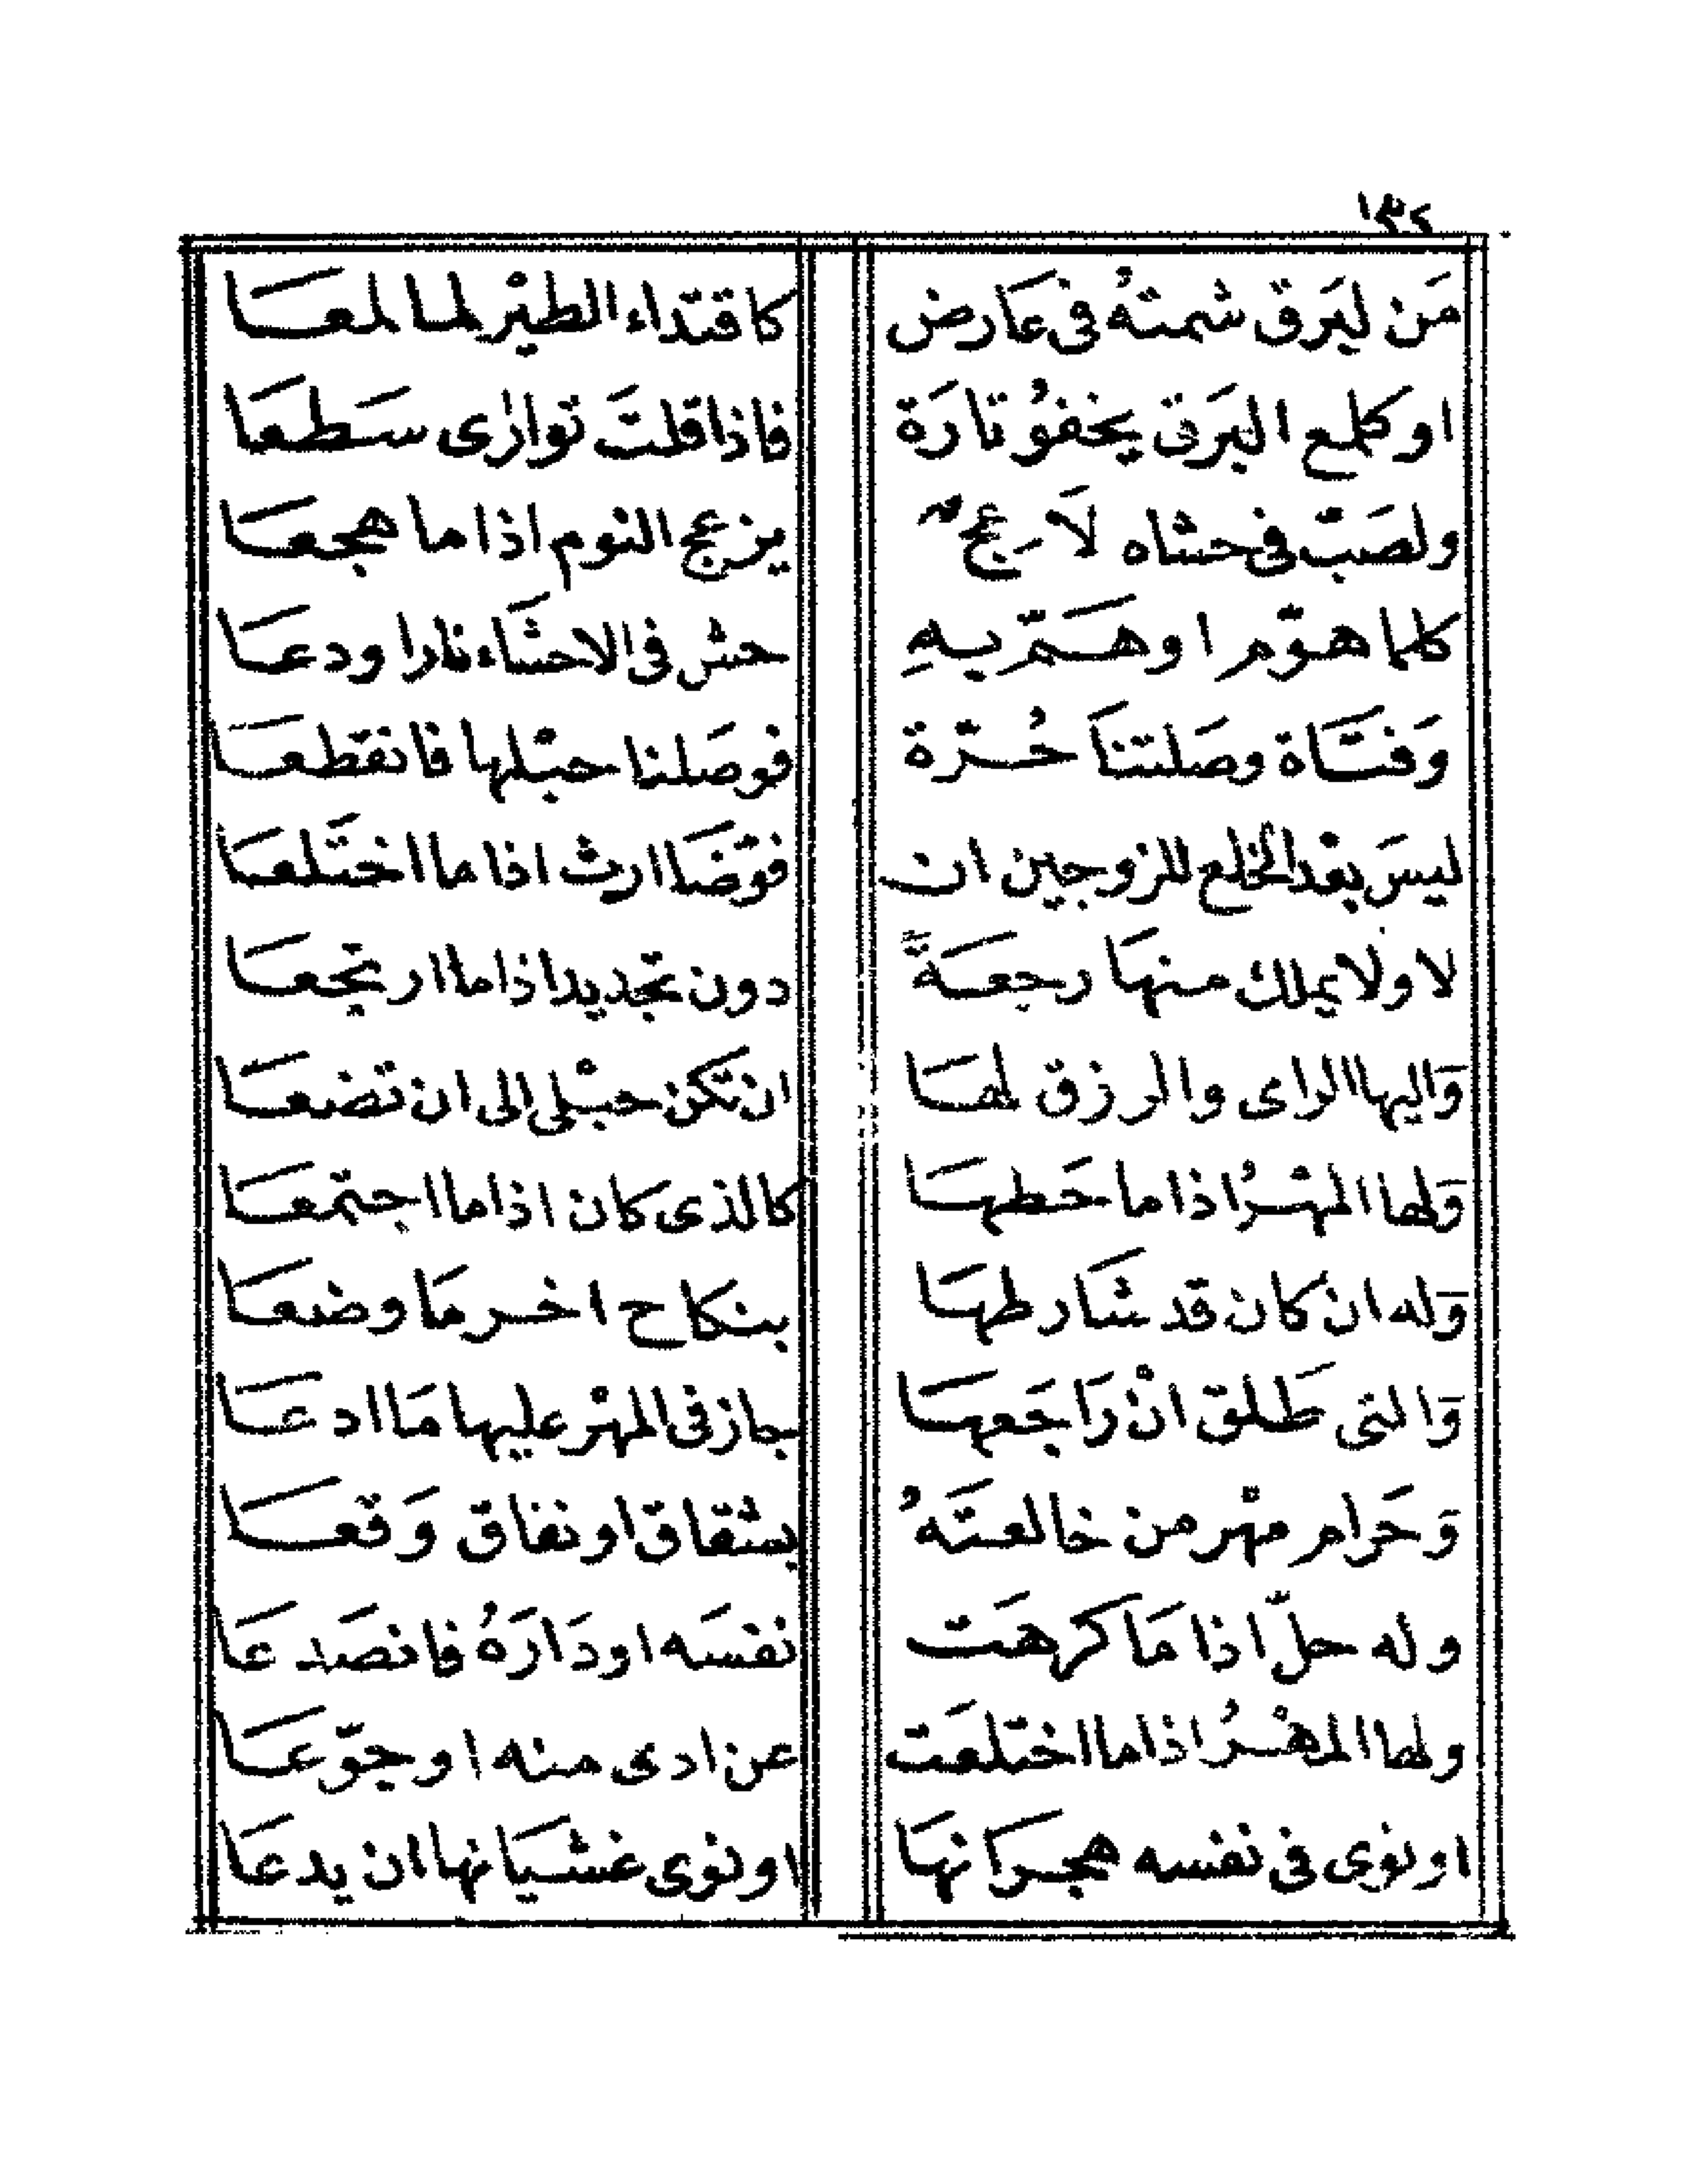 ١٣٤
مَن لبَرق شمتهُ في عَارض كاقتداء الطيْر لما لمعَا
او كلمع البَرق يخفوُ تارَة فاذا قلتَ توارٰى سَطعَا
ولصَبّ في حشاه لَاعِج يزعج النوم اذا ما هجعَا
كلما هوّم او هَمّ بهِ حش في الاحشَاء نارا ودعَا
وَفتَاة وصَلتنَا حُرّة فوصَلنا حبْلها فانقطعَا
ليسَ بعْد الخلع للزوجين ان اذا ما اختَلعَا
لا ولا يملك منهَا رجعَةً دون تجديد اذا ما ارتجعَا
وَاليها الراى والرزق لهَا ان تكن حبْلى الى ان تضعَا
وَلها المهْرُ اذا ما حَطهَا كالذى كان اذا ما اجتمعَا
وَله ان كان قد شَارطهَا بنكاح اخر مَا وضعَا
وَالتى طَلق انْ رَاجَعهَا جاز في المهْر عليها مَا ادعَا
وَحَرام مهْر من خالعتَهُ بشقاق او نفاق وَقعَا
وله حلّ اذا مَا كرهَت نفسَه او دَارَهُ فانصَدعَا
ولها المهْرُ اذا ما اختلعَت عن ادى منه او جوّعَا
او نوى في نفسه هجرَانهَا او نوى غشيَانها ان يدعَا